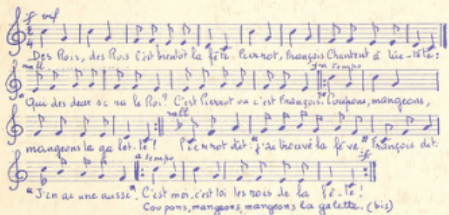 vif
Des Rois, des Rois c'est bientôt la fête. Pierrot, François Chantent à tue-tête:
rall a Tempo
"Qui des deux se ra le Roi? C'est Pierrot ou c'est François. Coupons, mangeons,
rall
mangeons la ga let. te! Pierrot dit: "j'ai trouvé la fève." François dit:
a Tempo
"J'en ai une aussi". C'est moi, c'est toi les rois de la fê. te!
Coupons, mangeons, mangeons la galette. (bis)